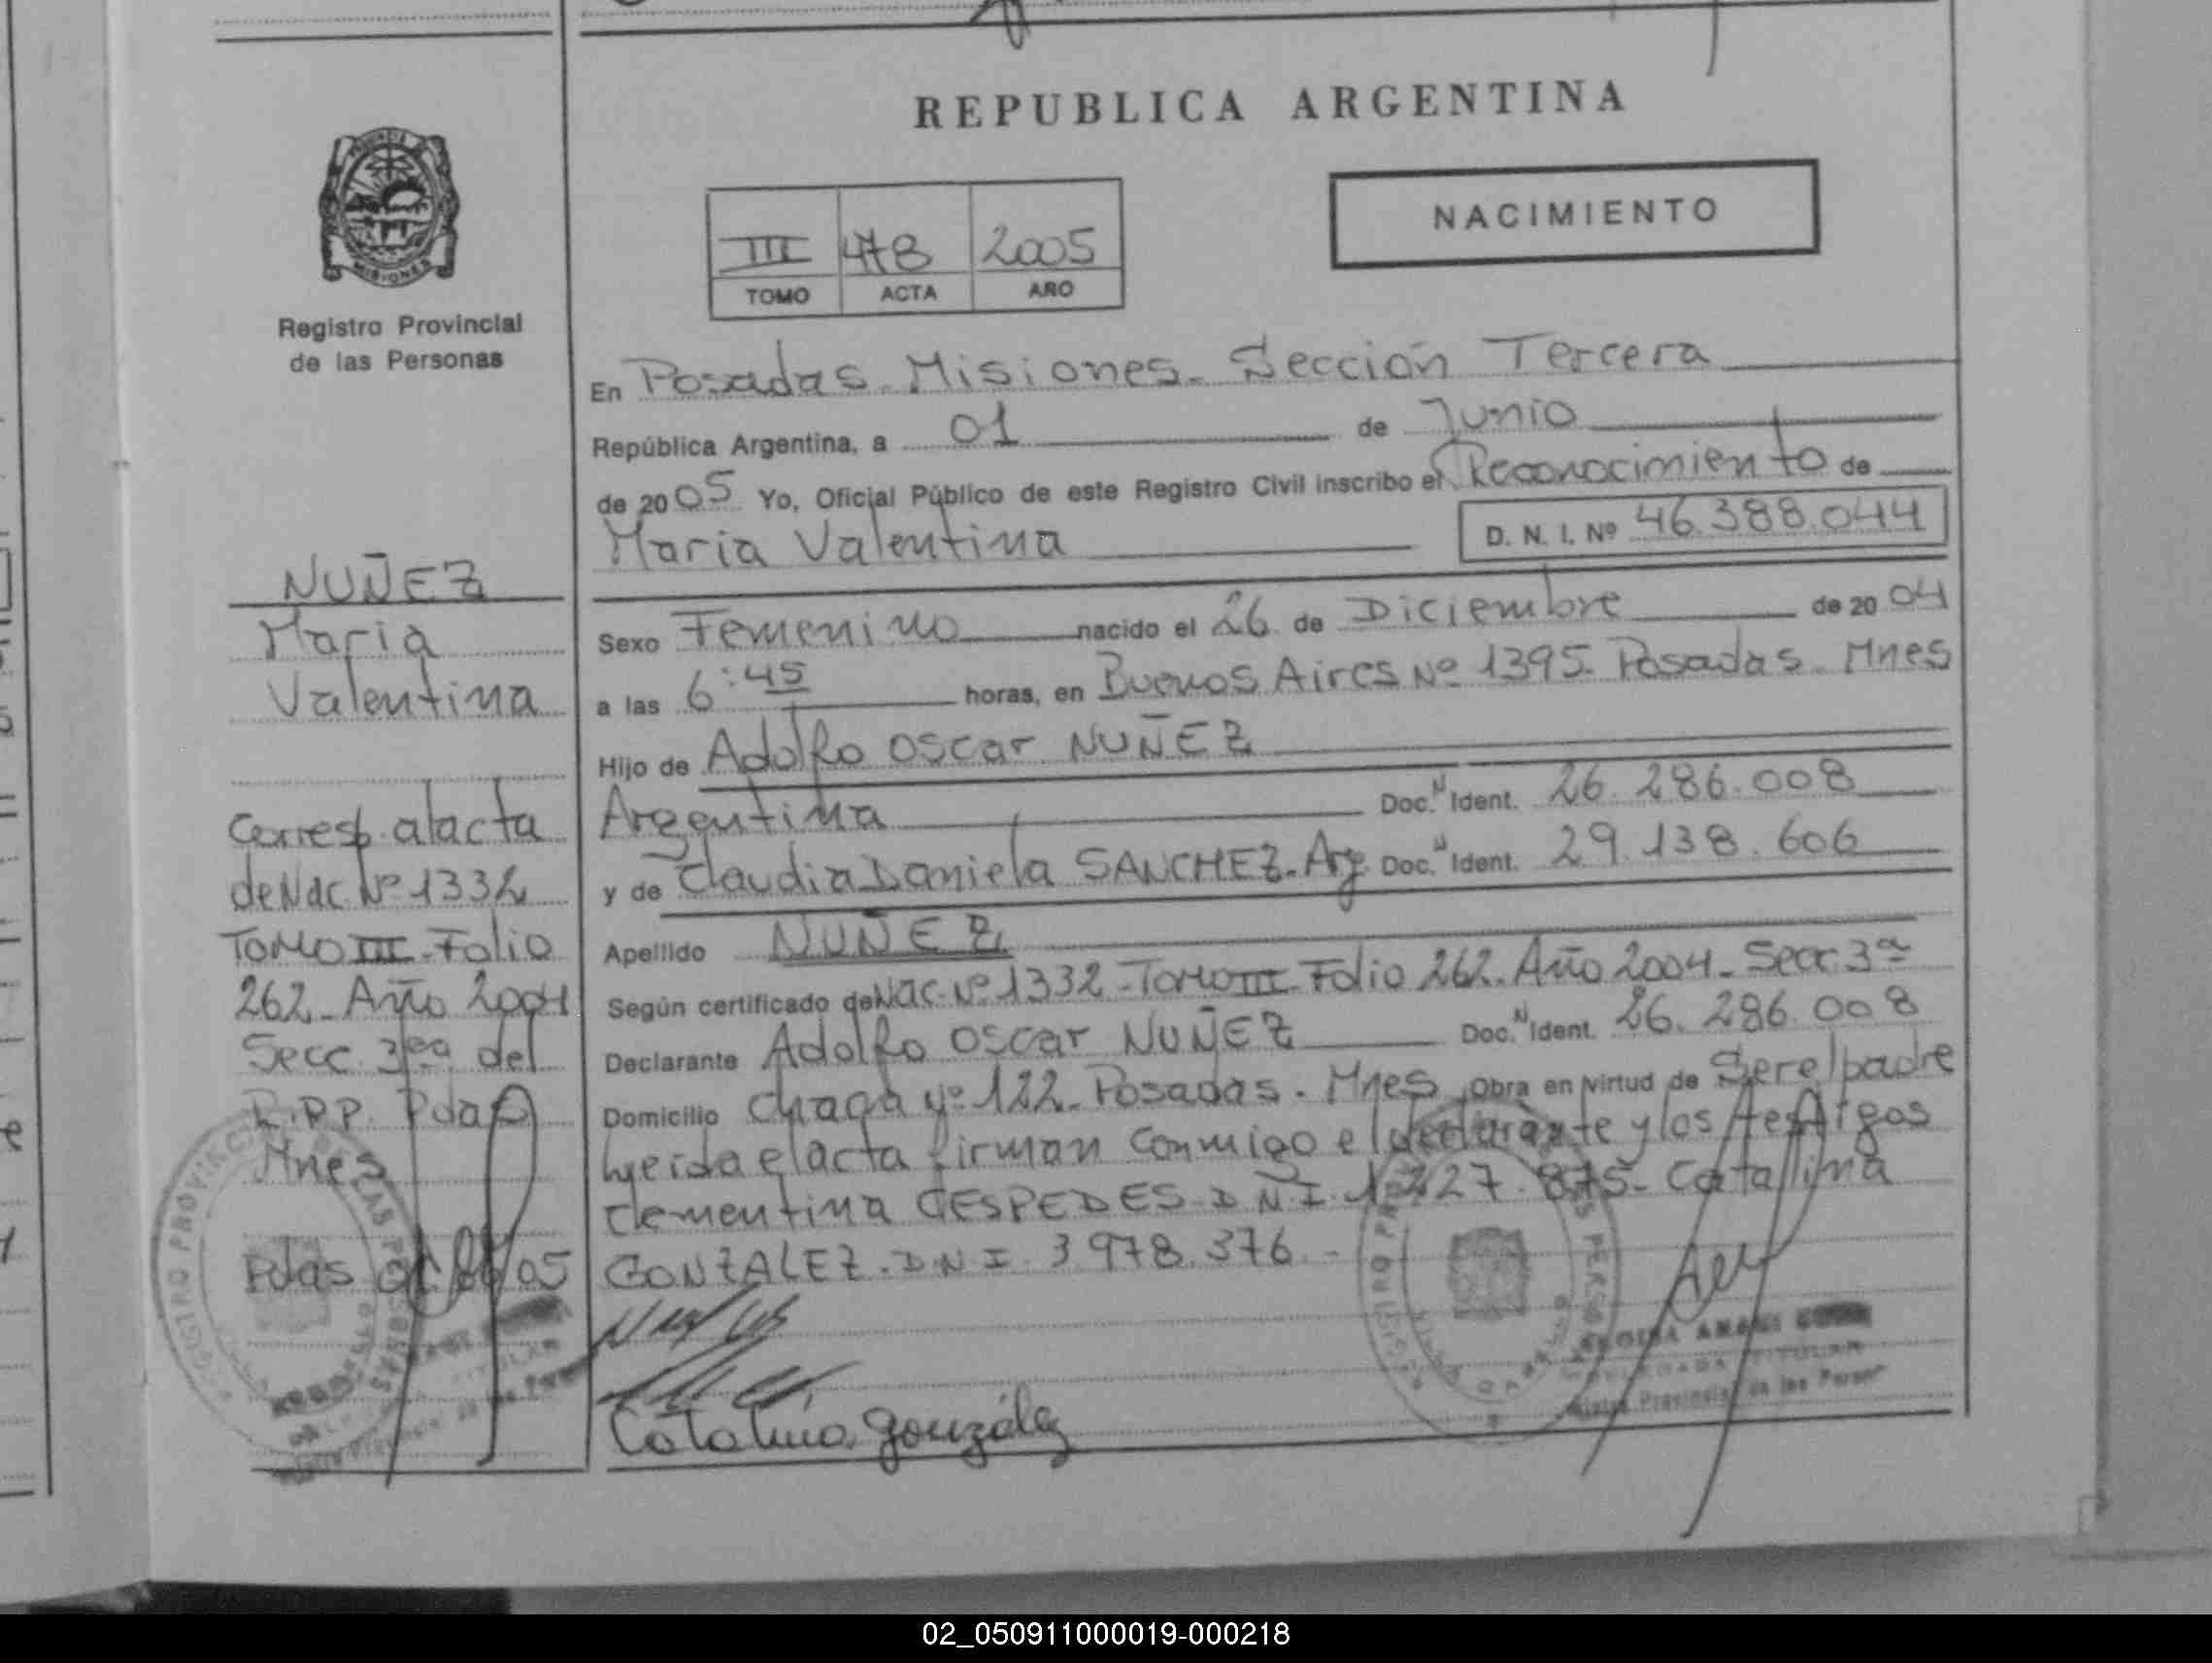 REPUBLICA ARGENTINA
NACIMIENTO
III 478 2005
TOMO ACTA AÑO
PROVINCIA DE
MISIONES
Registro Provincial
de las Personas
NUÑEZ
Maria
Valentina
Corresp. al acta
de Nac. Nº 1332
Tomo III - Folio
262 - Año 2004
Secc. 3era del
R.P.P. Pdas
Mnes
Pdas 01/06/05
En Posadas - Misiones - Sección Tercera
República Argentina, a 01 de Junio
de 2005 Yo, Oficial Público de este Registro Civil inscribo el Reconocimiento de
Maria Valentina D. N. I. Nº 46.388.044
Sexo Femenino nacido el 26 de Diciembre de 2004
a las 6:45 horas, en Buenos Aires Nº 1395 - Posadas - Mnes
Hijo de Adolfo Oscar NUÑEZ
Argentina Doc. N Ident. 26.286.008
y de Claudia Daniela SANCHEZ - Arg. Doc. N Ident. 29.138.606
Apellido NUÑEZ
Según certificado de Nac. Nº 1332 - Tomo III - Folio 262 - Año 2004 - Secc 3ª
Declarante Adolfo Oscar NUÑEZ Doc. N Ident. 26.286.008
Domicilio Chaca Nº 122 - Posadas - Mnes Obra en virtud de Ser el padre
Leida el acta firman conmigo el declarante y los testigos
Clementina CESPEDES - D N I 1.227.875 - Catalina
GONZALEZ - D N I 3.978.376 -
Catalina González
02_050911000019-000218